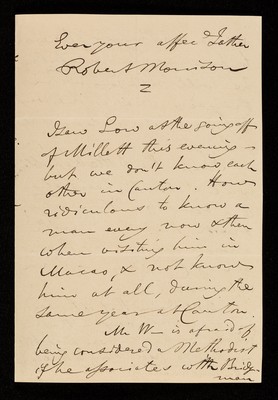 Ever your affec. Father
Robert Morrison
I saw Low at the going off
of Millett this evening –
but we don't know each
other in Canton. How
ridiculous to know a
man every now & then
when visiting him in
Macao, & not know
him at all, during the
same year at Canton.
Mr W– is afraid of
being considered a Methodist
if he associates with Bridge
man